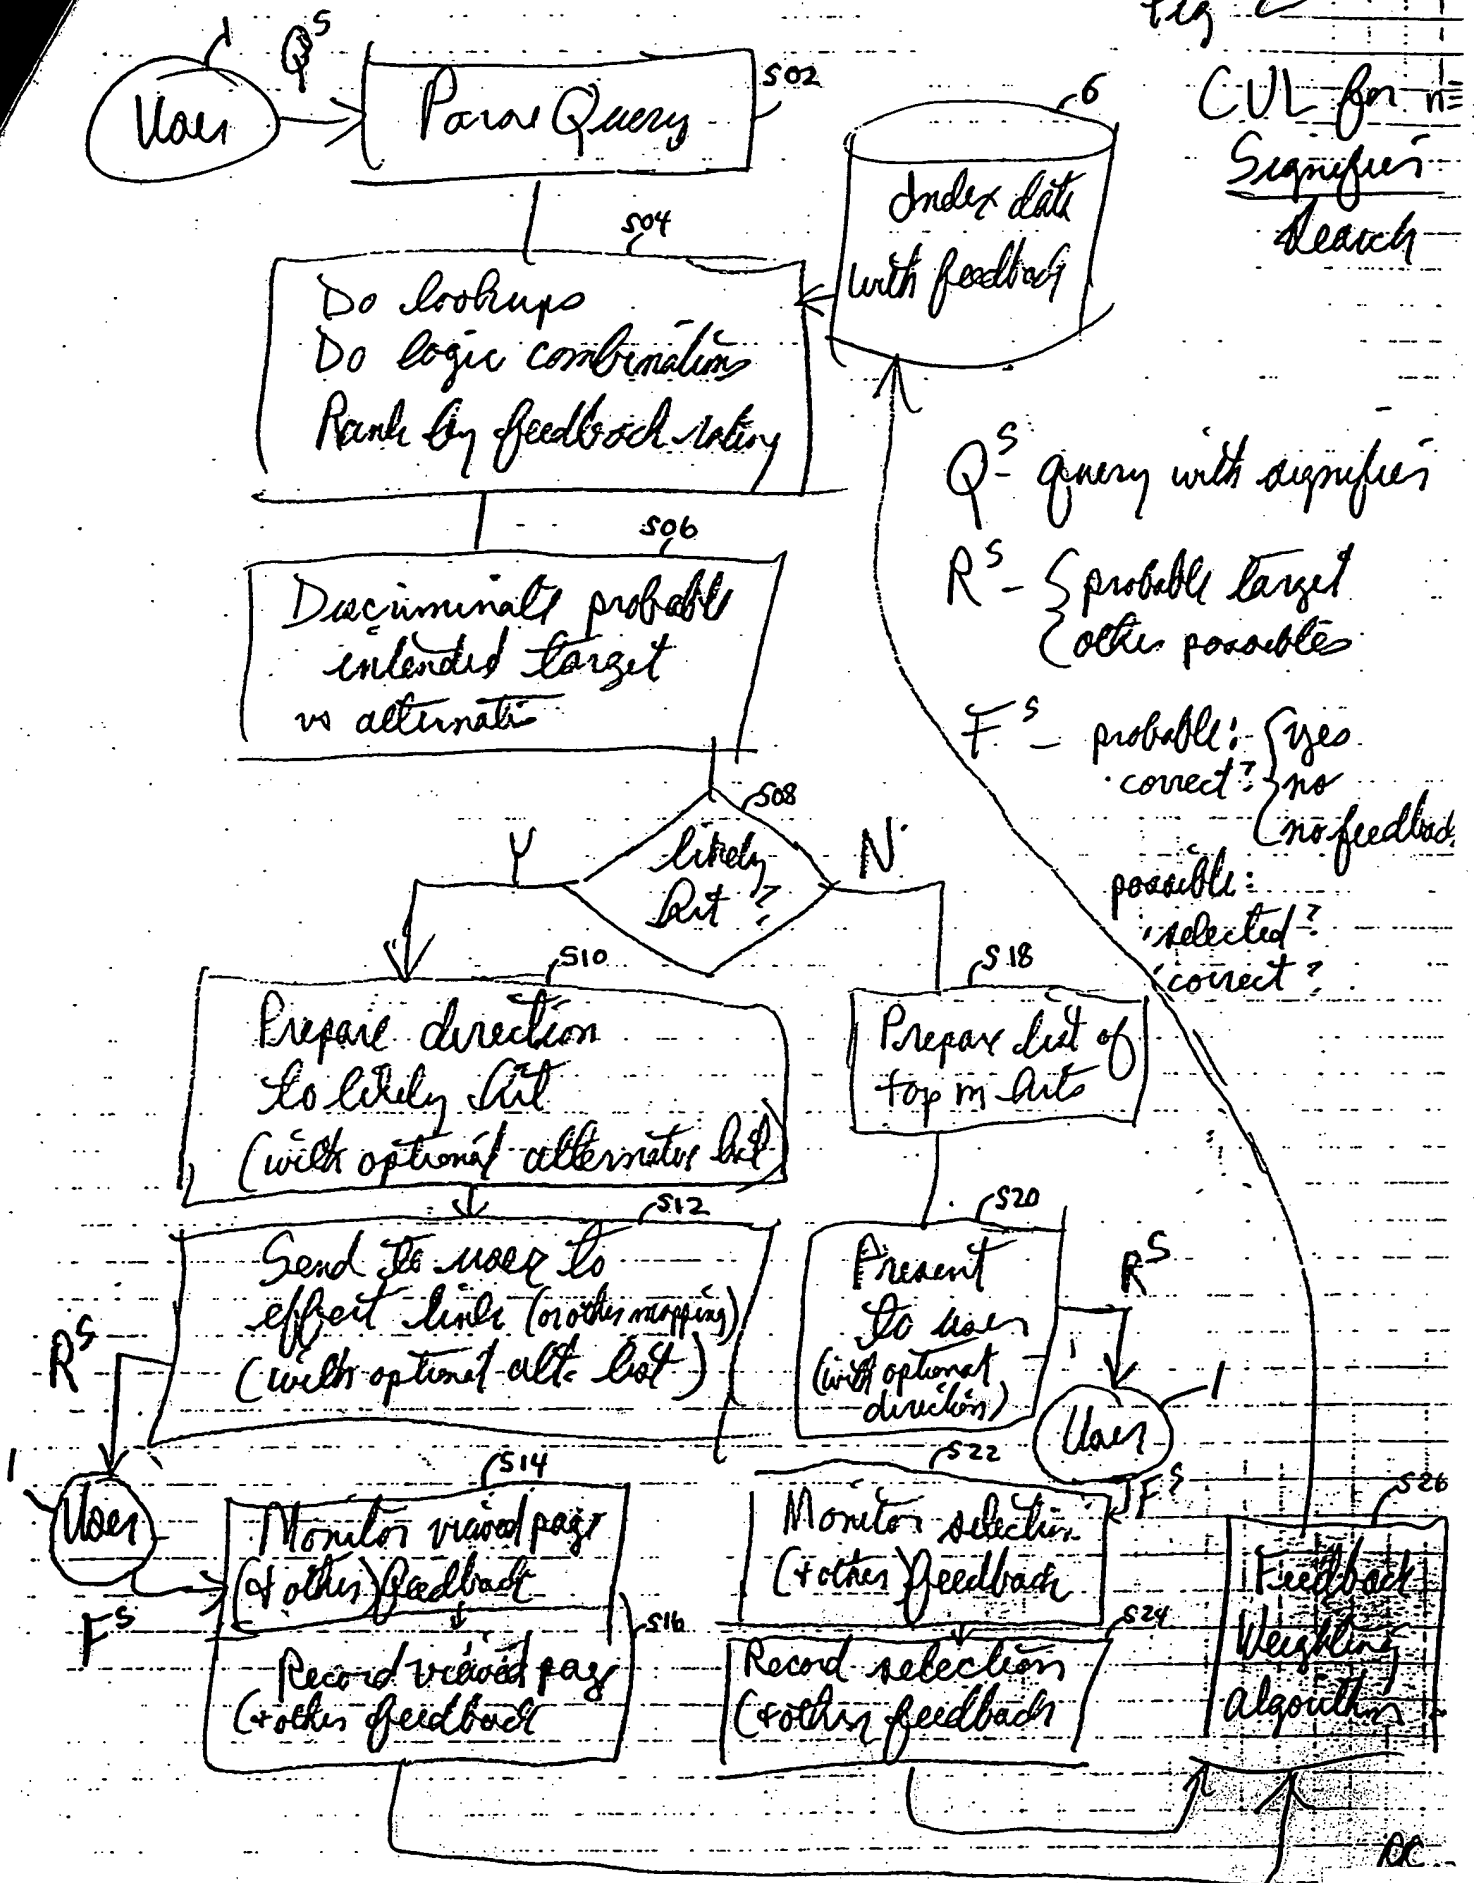 Fig 2
CUL for
Signifier
Search
1
Q^S
User
Parse Query
S02
6
Index data
with feedback
S04
Do lookups
Do logic combinations
Rank by feedback rating
Q^S - query with signifier
R^S - { probable target
{ other possibles
F^S - probable: { yes
correct? { no
{ no feedback
possible:
selected?
correct?
S06
Discriminate probable
intended target
vs
S08
likely
hit?
Y
N
S10
Prepare direction
to likely hit
(with optional alternative list)
S18
Prepare list of
top m hits
S12
Send to user to
effect link (or other mapping)
(with optional alt. list)
R^S
S20
Present
to user
(with optional
direction)
R^S
1
User
1
User
F^S
S14
Monitor viewed page
(+ other) feedback
S16
Record viewed page
(+ other feedback
S22
Monitor selection
(+ other) feedback
F^S
S24
Record selection
(+ other feedback
S26
Feedback
Weighting
Algorithm